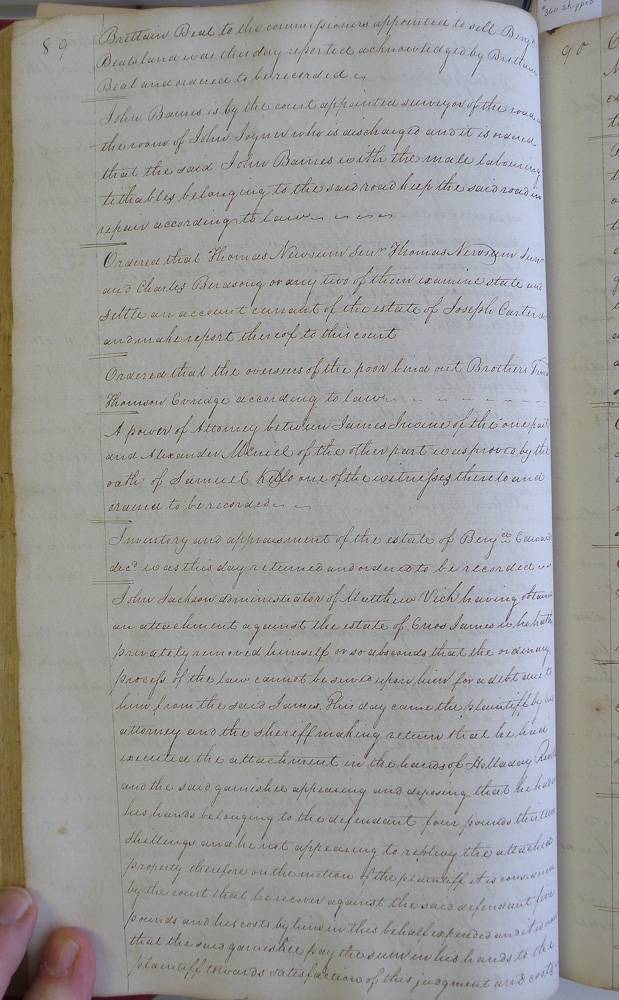 89
Brittain Beal to the commissioners appointed to sell Benj.
Beals land was this day reported acknowledged by Brittain
Beal and ordered to be recorded
John Barnes is by the court appointed surveyor of the road in
the room of John Joyner who is discharged and it is ordered
that the said John Barnes with the male labouring
tithables belonging to the said road keep the said road in
repair according to law
Ordered that Thomas Newsum Senr Thomas Newsum Junr
and Charles Berdsong or any two of them examine state and
settle an account currant of the estate of Joseph Carter
and make report thereof to this court
Ordered that the overseers of the poor bind out Brothers
Thomson Evridge according to law
A power of Attorney between James of the one part
and Alexander of the other part was proved by the
oath of Samuel Kello one of the witnesses thereto and
ordered to be recorded
Inventory and appraisment of the estate of Benja
decd was this day returned and ordered to be recorded
John Jackson administrator of Matthew Vick having obtain
an attachment against the estate of Enos James who hath
privately removed himself or so absconds that the ordinary
process of the law cannot be served upon him for a debt due to
him from the said James. This day came the plaintiff by his
attorney and the sheriff making return that he had
executed the attachment in the hands of Holladay
and the said garneshee appearing and deposing that he hath in
his hands belonging to the defendant four pounds
shillings and he not appearing to replevy the attached
property therefore on the motion of the plaintiff it is considered
by the court that he recover against the said defendant five
pounds and his costs by him in this behalf expended and it is
that the said garneshee pay the sum in his hands to the
plaintiff towards satisfaction of this judgment and costs
90